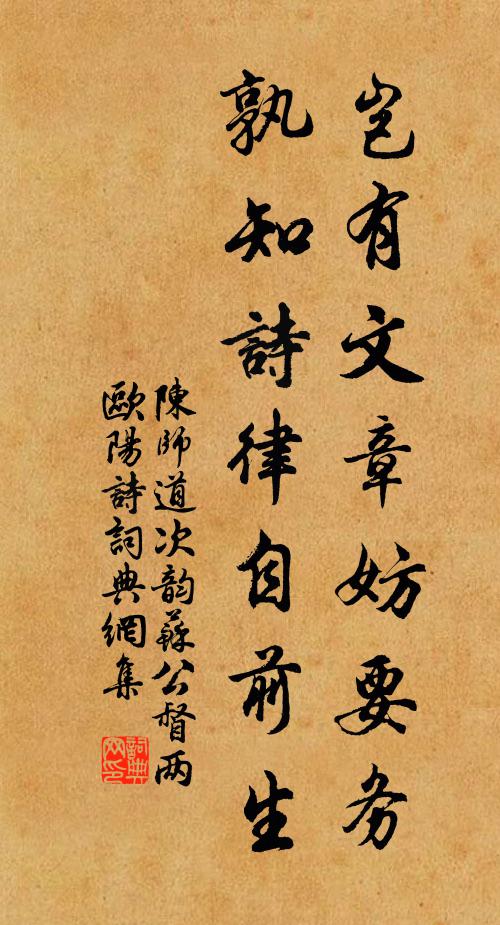 岂有文章妨要务
孰知詩律自前生
陳師道次韵蘇公督两
歐陽詩詞典網集
詞典網印